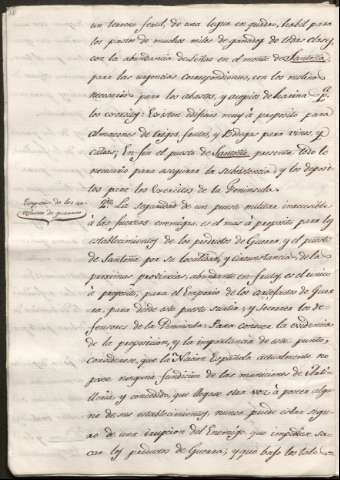 un terreno feraz, de una legua en quadro, habil para
los pastos de muchos miles de ganados de todas clases,
con la abundancia de leñas en el monte de Santoña
para las urgencias correspondientes, con los molinos
necesarios para los abastos, y acopios de harina
los cosechas: Existen edificios muy á proposito para
almacenes de trigos, frutos, y Bodegas para vinos, y
En fin el puerto de Santoña presenta todo lo
necesario para asegurar la subsistencia, y los depositos
para los Exercitos de la Peninsula.
Emporio de los
de guerra
2º La seguridad de un puerto militar inaccesible
á las fuerzas enemigas, es el mas á proposito para los
establecimientos de los pertrechos de Guerra, y el puerto
de Santoña por su localidad, y circunstancias de las
proximas provincias, abundante en frutos, es el unico
á proposito, para el Emporio de los artefactos de Guerra,
para donde este puerto surtir, y socorrer los
defensores de la Peninsula. Para conocer la evidencia
de la proposicion, y la importancia de este punto,
considerese, que la Nacion Española actualmente no
posee ninguna fundicion de las municiones de Artilleria,
y concedido, que llegase otra vez á poseer alguno
de sus establecimientos, nunca puede estar seguro
de una irrupcion del Enemigo que impidiese sacar
los pertrechos de Guerra; y que bajo los tales